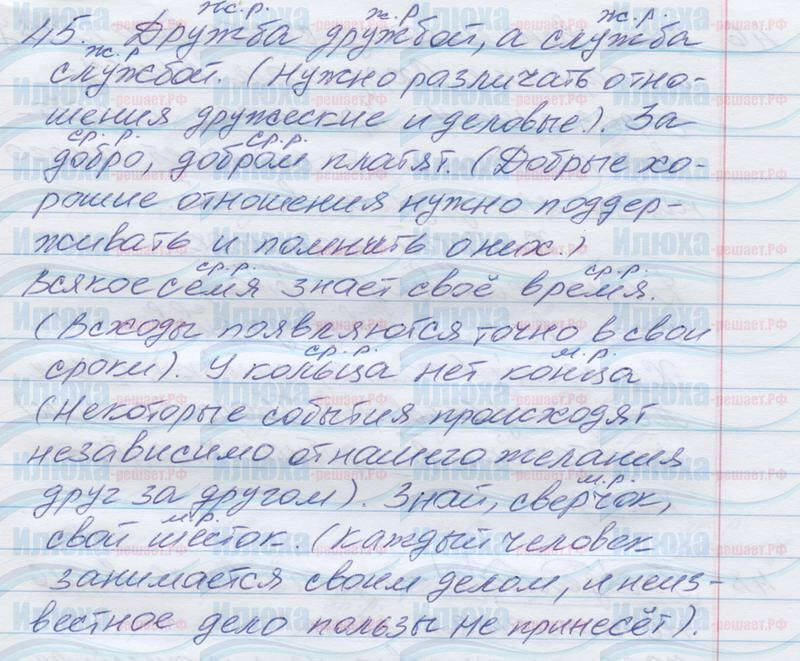 ж.р. ж.р. ж.р.
45. Дружба дружбой, а служба
ж.р.
службой. (Нужно различать отно-
шения дружеские и деловые.). За
ср.р. ср.р.
добро, добром платят. (Добрые хо-
рошие отношения нужно поддер-
живать и помнить о них.)
ср.р. ср.р.
Всякое семя знает своё время.
(Всходы появляются точно в свои
ср.р. м.р.
сроки). У кольца нет конца
(Некоторые события происходят
независимо от нашего желания
м.р.
друг за другом). Знай, сверчок,
м.р.
свой шесток. (Каждый человек
занимается своим делом, и неиз-
вестное дело пользы не принесёт).
Илюха-решает.РФ